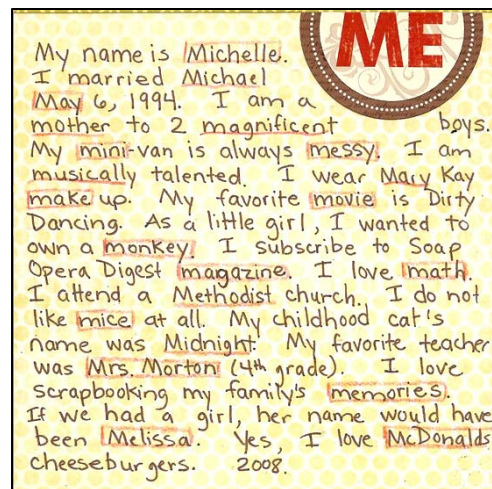 ME
My name is Michelle.
I married Michael
May 6, 1994. I am a
mother to 2 magnificent boys.
My mini-van is always messy. I am
musically talented. I wear Mary Kay
make up. My favorite movie is Dirty
Dancing. As a little girl, I wanted to
own a monkey. I subscribe to Soap
Opera Digest magazine. I love math.
I attend a Methodist church. I do not
like mice at all. My childhood cat's
name was Midnight. My favorite teacher
was Mrs. Morton (4th grade). I love
scrapbooking my family's memories.
If we had a girl, her name would have
been Melissa. Yes, I love McDonalds
cheeseburgers. 2008.